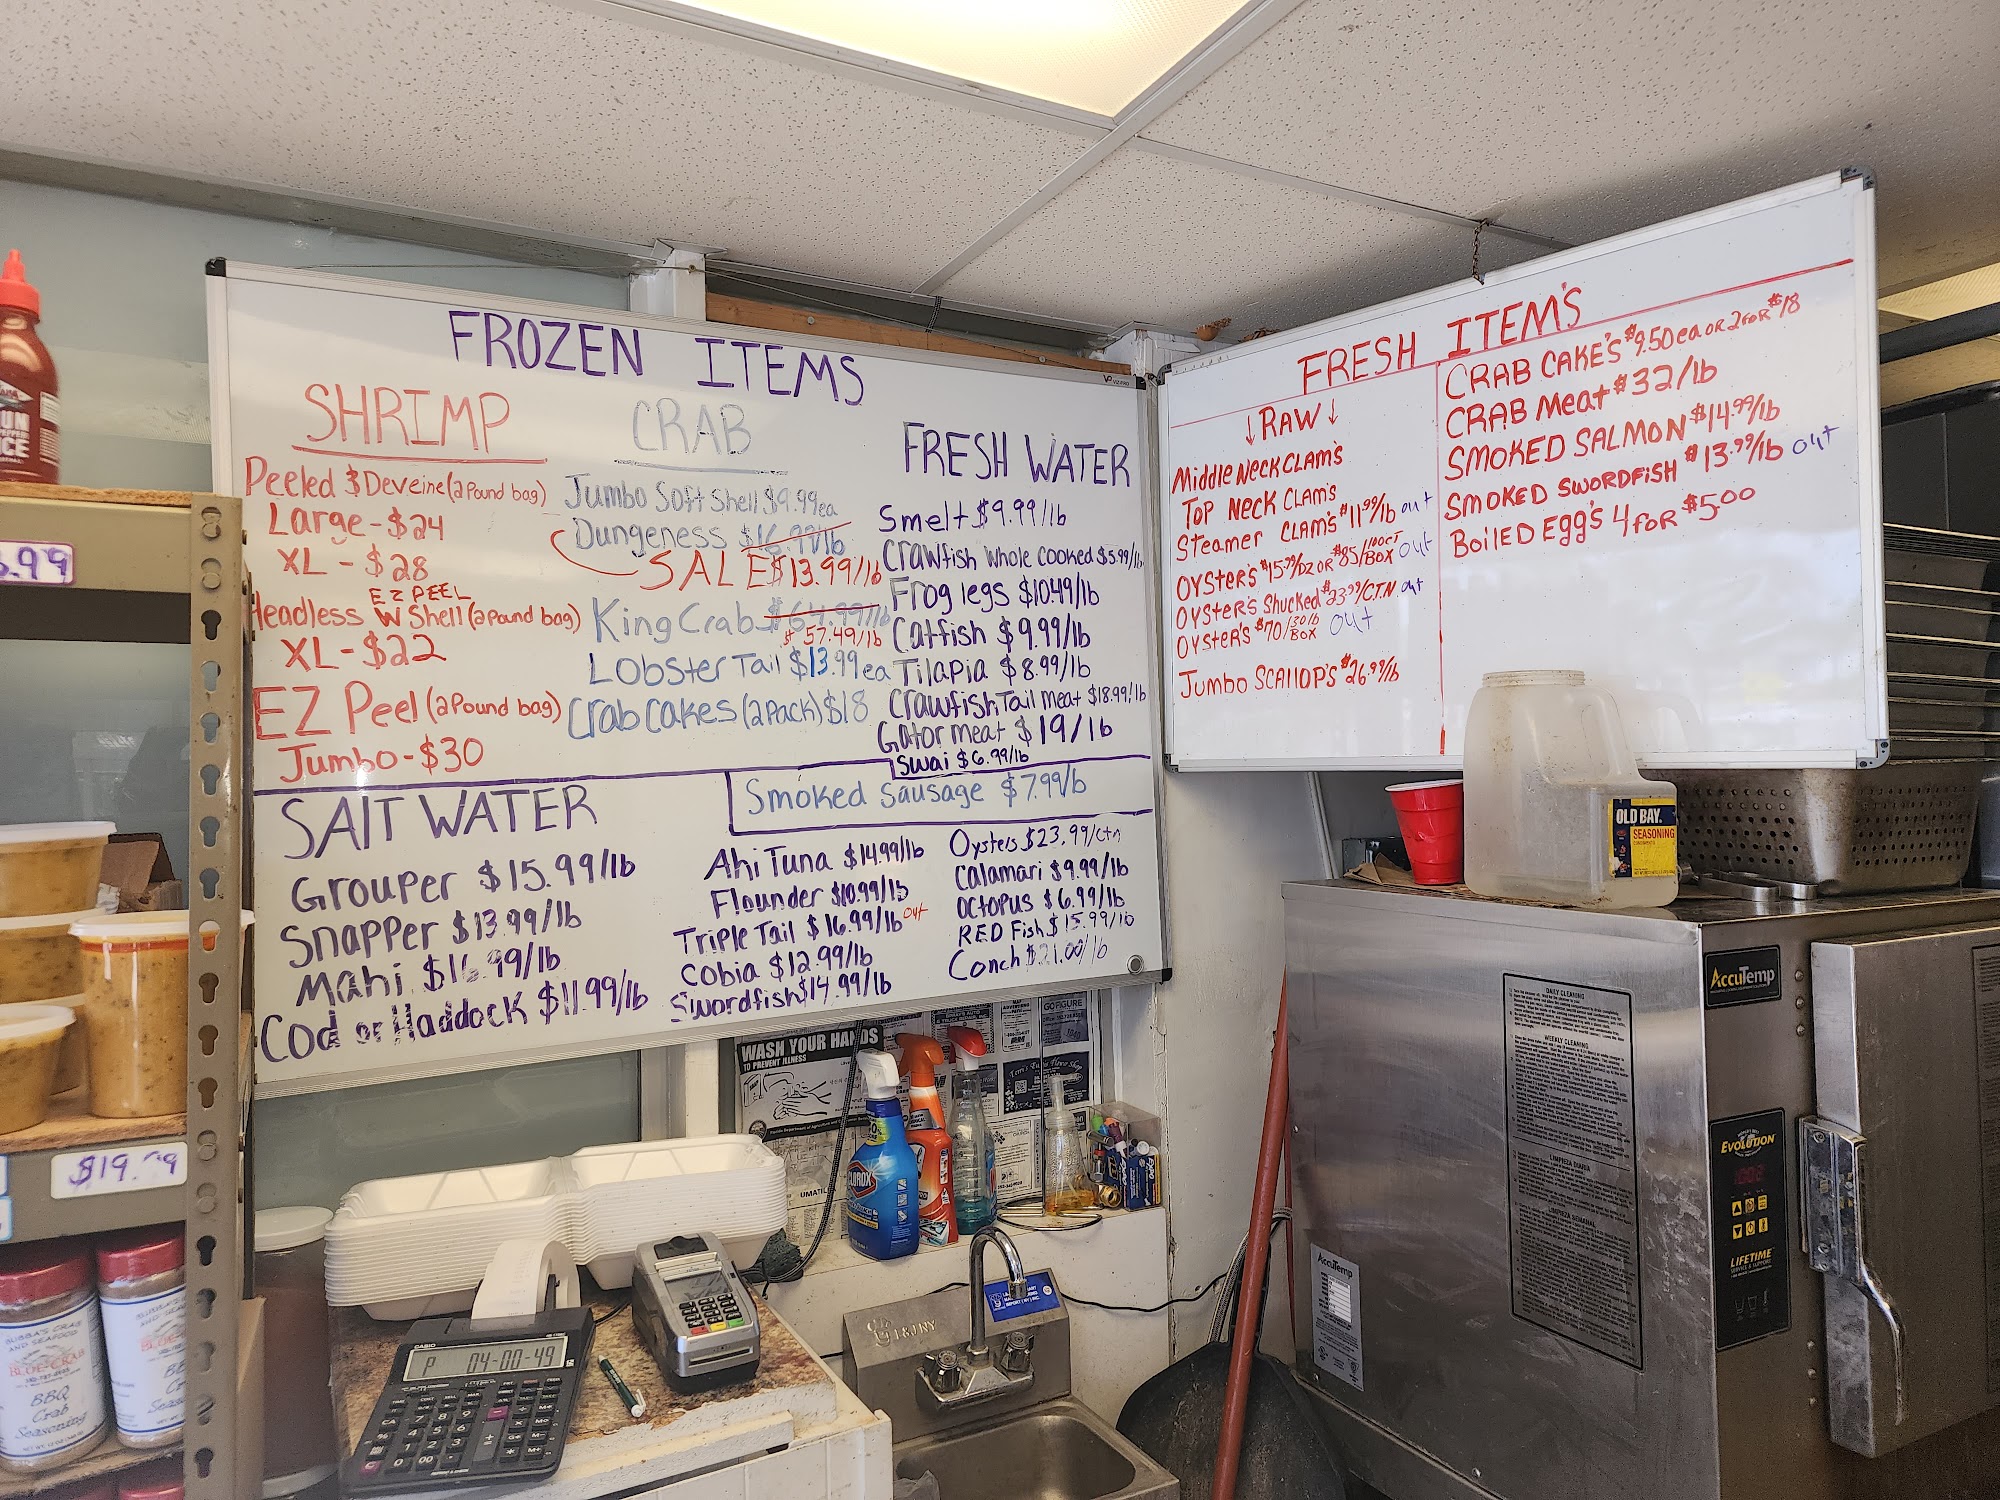 FROZEN ITEMS
SHRIMP
Peeled & Deveine (2 Pound bag)
Large - $24
XL - $28
EZ PEEL
Headless W Shell (2 Pound bag)
XL - $22
EZ Peel (2 Pound bag)
Jumbo - $30
CRAB
Jumbo Soft Shell $9.99 ea
Dungeness $16.99/lb
SALE $13.99/lb
King Crab $64.99/lb
$57.49/lb
Lobster Tail $13.99 ea
Crab Cakes (2 Pack) $18
FRESH WATER
Smelt $9.99/lb
Crawfish Whole Cooked $5.99/lb
Frog legs $10.49/lb
Catfish $9.99/lb
Tilapia $8.99/lb
Crawfish Tail meat $18.99/lb
Gator meat $19/lb
Swai $6.99/lb
Smoked Sausage $7.99/lb
SALT WATER
Grouper $15.99/lb
Snapper $13.99/lb
Mahi $16.99/lb
Cod or Haddock $11.99/lb
Ahi Tuna $14.99/lb
Flounder $10.99/lb
Triple Tail $16.99/lb out
Cobia $12.99/lb
Swordfish $14.99/lb
Oysters $23.99/ctn
Calamari $9.99/lb
Octopus $6.99/lb
RED Fish $15.99/lb
Conch $21.00/lb
FRESH ITEM'S
↓RAW↓
Middle NECK CLAM'S
Top NECK CLAM'S
Steamer CLAM'S $11.99/lb out
OYSTER'S $15.99/DZ OR $85/100CT BOX out
OYSTER'S Shucked $23.99/CTN out
OYSTER'S $70/30lb BOX out
Jumbo SCALLOP'S $26.99/lb
CRAB CAKE'S $9.50 ea OR 2 FOR $18
CRAB Meat $32/lb
SMOKED SALMON $14.99/lb
SMOKED SWORDFISH $13.99/lb out
BOILED Egg'S 4 FOR $5.00
$19.99
OLD BAY
SEASONING
WASH YOUR HANDS
TO PREVENT ILLNESS
GO FIGURE
UMATIL
CLOROX
AccuTemp
DAILY CLEANING
WEEKLY CLEANING
LIMPIEZA DIARIA
LIMPIEZA SEMANAL
EVOLUTION
LIFETIME
SERVICE & SUPPORT
AccuTemp
CASIO
P 04-00-49
BUBBA'S CRAB
AND SEAFOOD
BLUE CRAB
BBQ
Crab
Seasoning